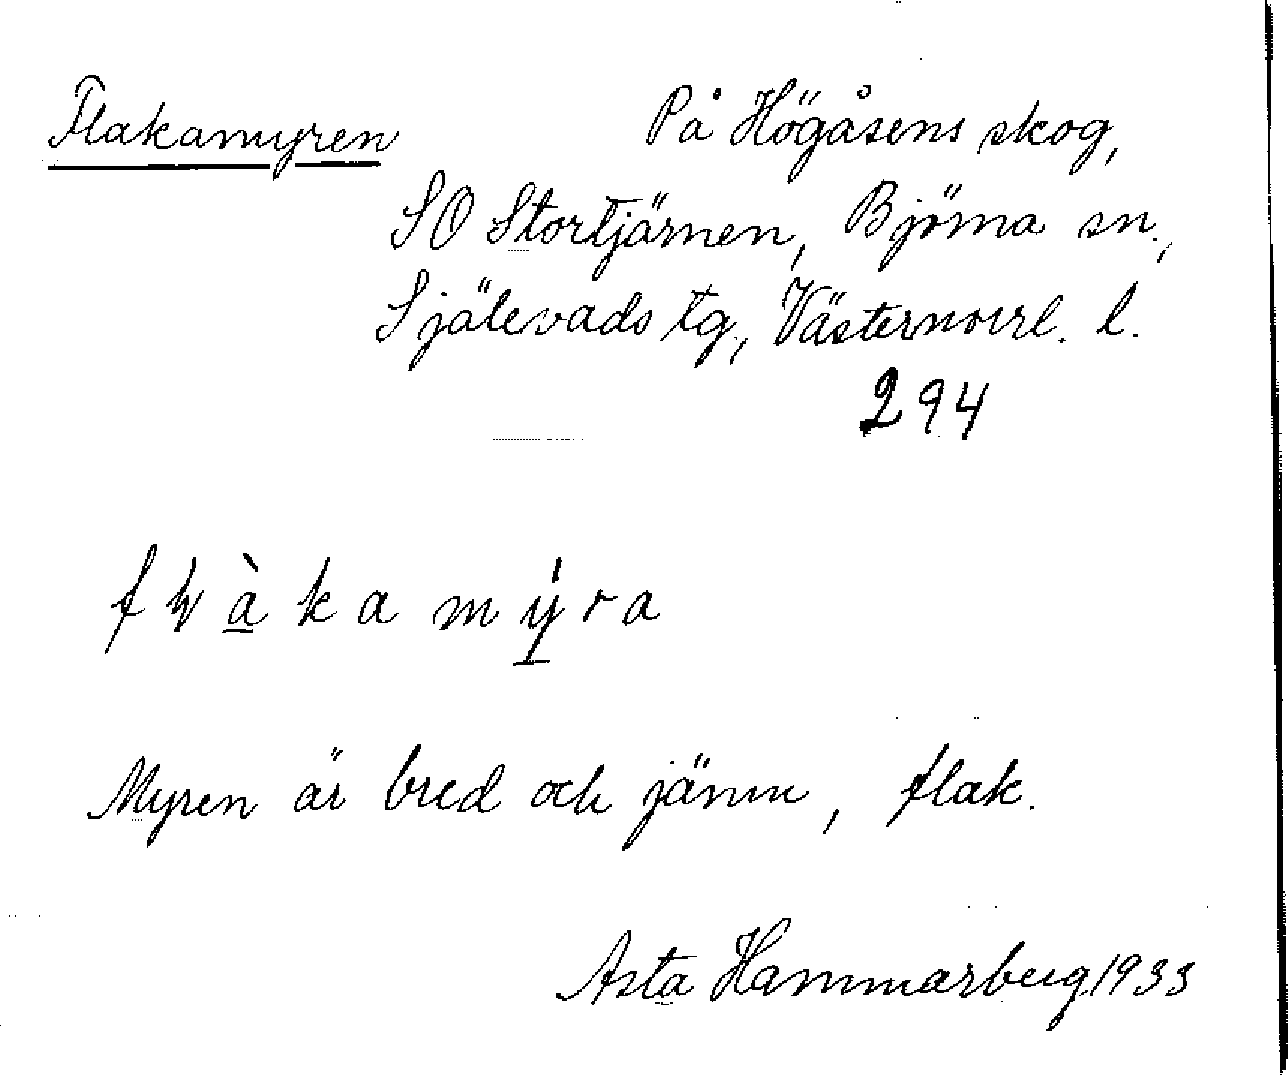 Flakamyren
På Högåsens skog,
SO Stortjärnen, Björna sn.,
Själevads tg, Västernorrl. l.
294
fɽàkamýra
Myren är bred och jämn, flak.
Asta Hammarberg 1933